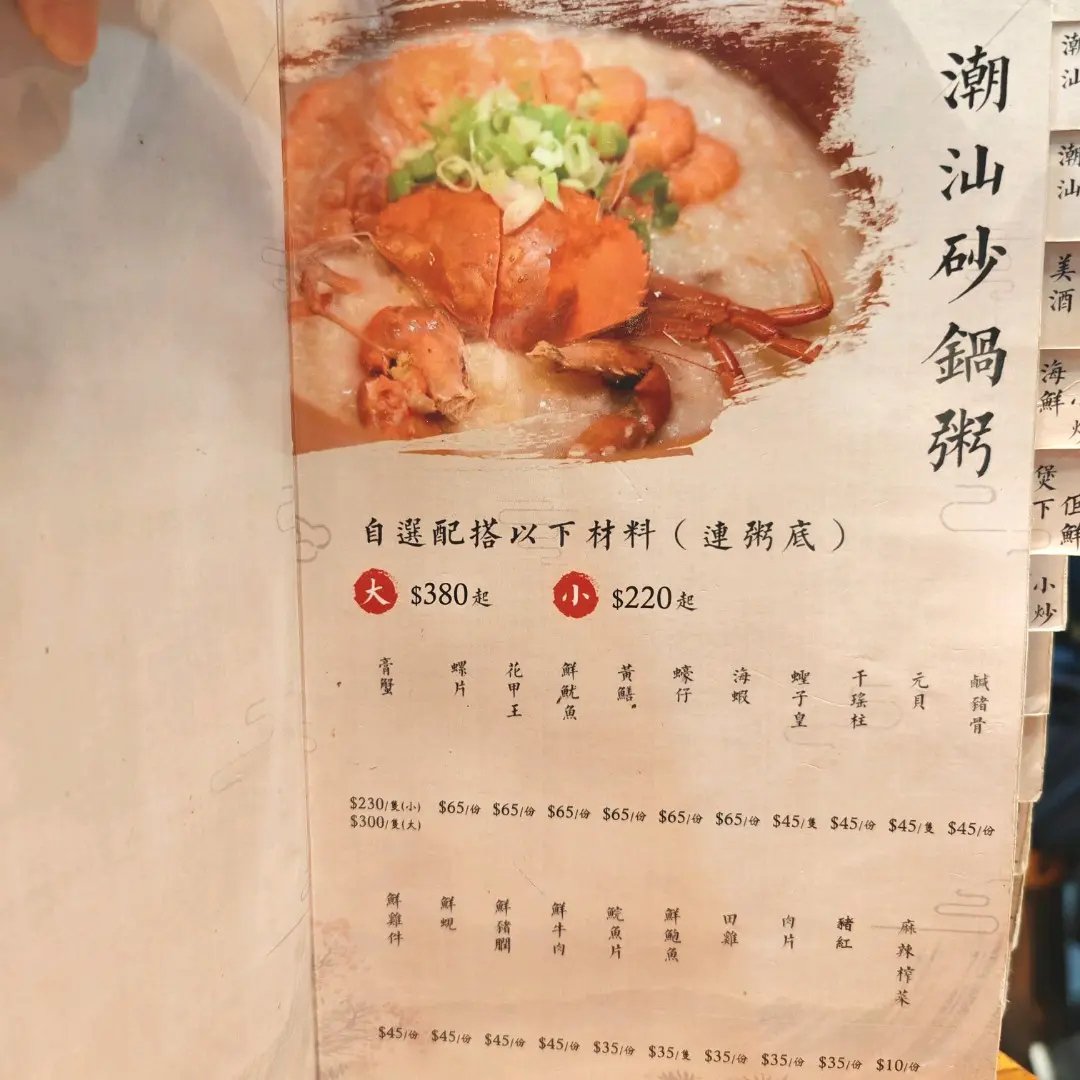 潮汕砂鍋粥
自選配搭以下材料（連粥底）
大 $380起 小 $220起
膏蟹 $230/隻(小) $300/隻(大)
螺片 $65/份
花甲王 $65/份
鮮魷魚 $65/份
黃鱔 $65/份
蠔仔 $65/份
海蝦 $65/份
蟶子皇 $45/隻
干瑤柱 $45/份
元貝 $45/隻
鹹豬骨 $45/份
鮮雞件 $45/份
鮮蜆 $45/份
鮮豬膶 $45/份
鮮牛肉 $45/份
鯇魚片 $35/份
鮮鮑魚 $35/隻
田雞 $35/份
肉片 $35/份
豬紅 $35/份
麻辣榨菜 $10/份
潮汕
潮汕
美酒
海鮮小炒
煲下
小炒